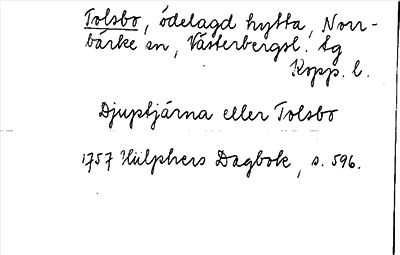 Tolsbo, ödelagd hytta, Norr-
bärke sn, Västerbergsl. lg
Kopp. l.
Djuptjärna eller Tolsbo
1757 Hülphers Dagbok, s. 596.